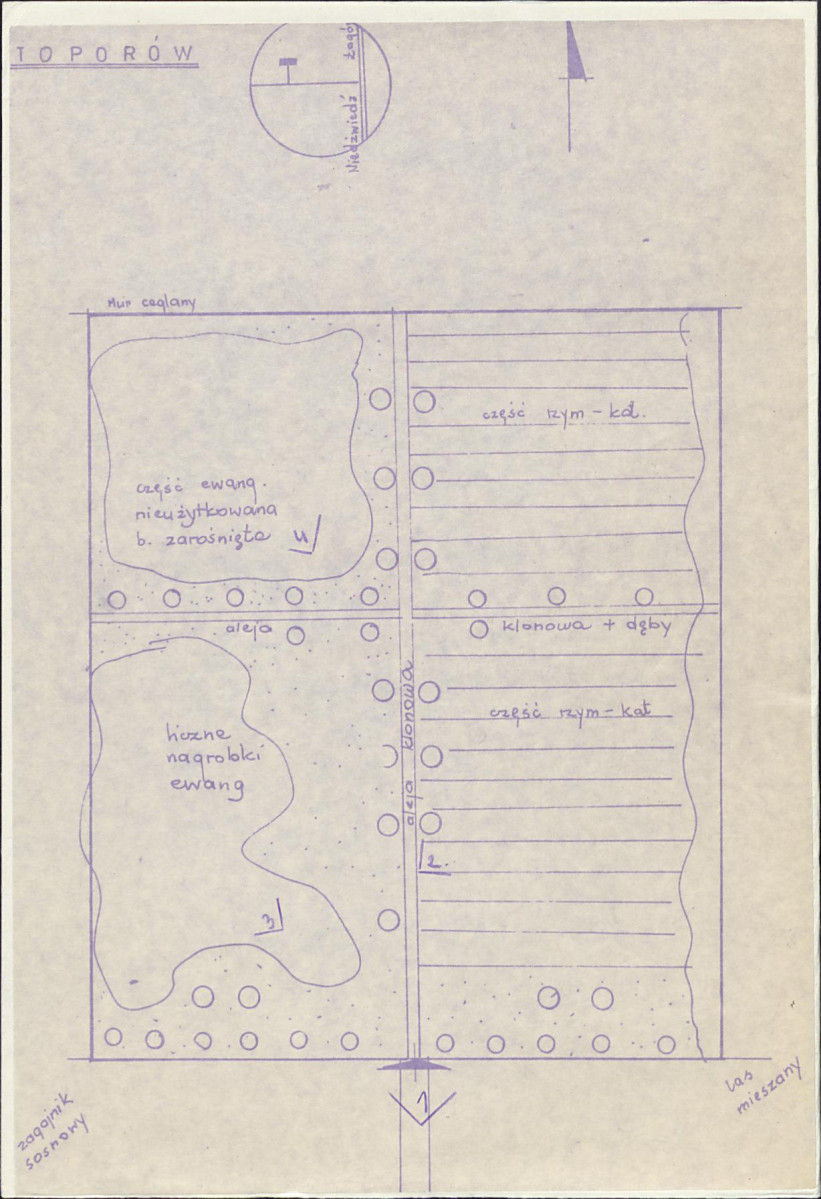 TOPORÓW
Żagó
Niedźwiedź
Mur ceglany
część rzym-kat.
część ewang.
nieużytkowana
b. zarośnięta
4
aleja
klonowa + dęby
aleja klonowa
część rzym-kat
liczne
nagrobki
ewang
2.
3
1
zagajnik
sosnowy
las
mieszany